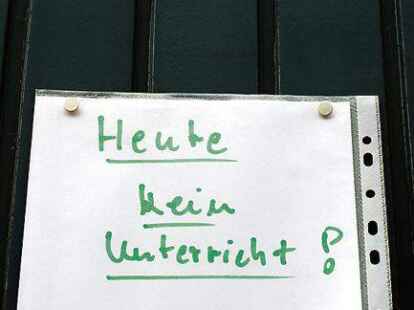 Heute
kein
Unterricht!